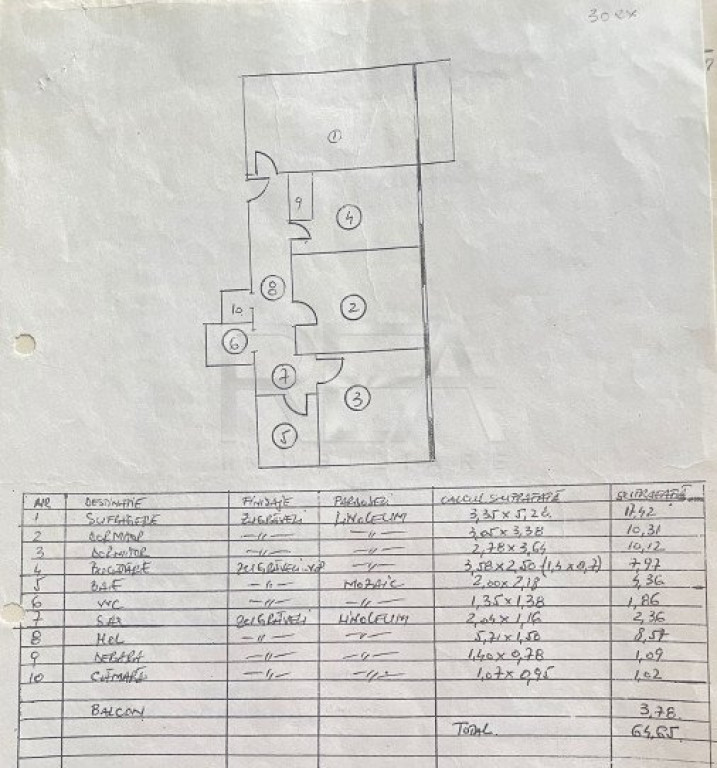 30 ex
1
9
4
8
10
2
6
7
3
5
NR DESTINATIE FINISAJE PARDOSELI CALCUL SUPRAFATĂ SUPRAFATĂ
1 SUFRAGERIE ZUGRĂVELI LINOLEUM 3,35 x 5,2 17,42
2 DORMITOR -//- -//- 3,05 x 3,38 10,31
3 DORMITOR -//- -//- 2,78 x 3,64 10,12
4 BUCĂTĂRIE ZUGRĂVELI -//- 3,58 x 2,50 (1,4 x 0,7) 7,97
5 BAIE -//- MOZAIC 2,00 x 2,18 4,36
6 WC -//- -//- 1,35 x 1,38 1,86
7 SAS ZUGRĂVELI LINOLEUM 2,04 x 1,16 2,36
8 HOL -//- -//- 5,71 x 1,50 8,57
9 DEBARA -//- -//- 1,40 x 0,78 1,09
10 CĂMARĂ -//- -//- 1,07 x 0,95 1,02
BALCON 3,78
TOTAL 64,65